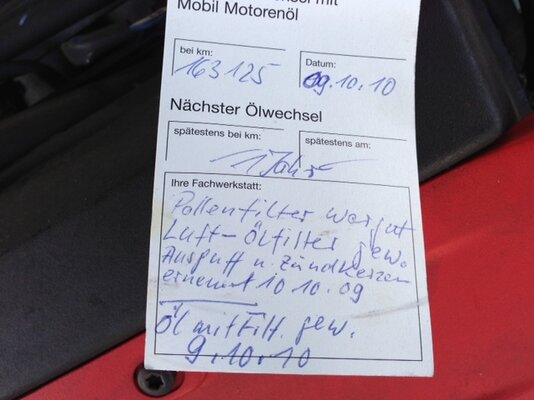 mit
Mobil Motorenöl
bei km:
Datum:
163 125
09.10.10
Nächster Ölwechsel
spätestens bei km:
spätestens am:
1 Jahr
Ihre Fachwerkstatt:
Pollenfilter war gut
Luft-Ölfilter gew.
Auspuff u. Zündkerzen
erneuert 10 10.09
Öl mit Filt. gew.
9.10.10